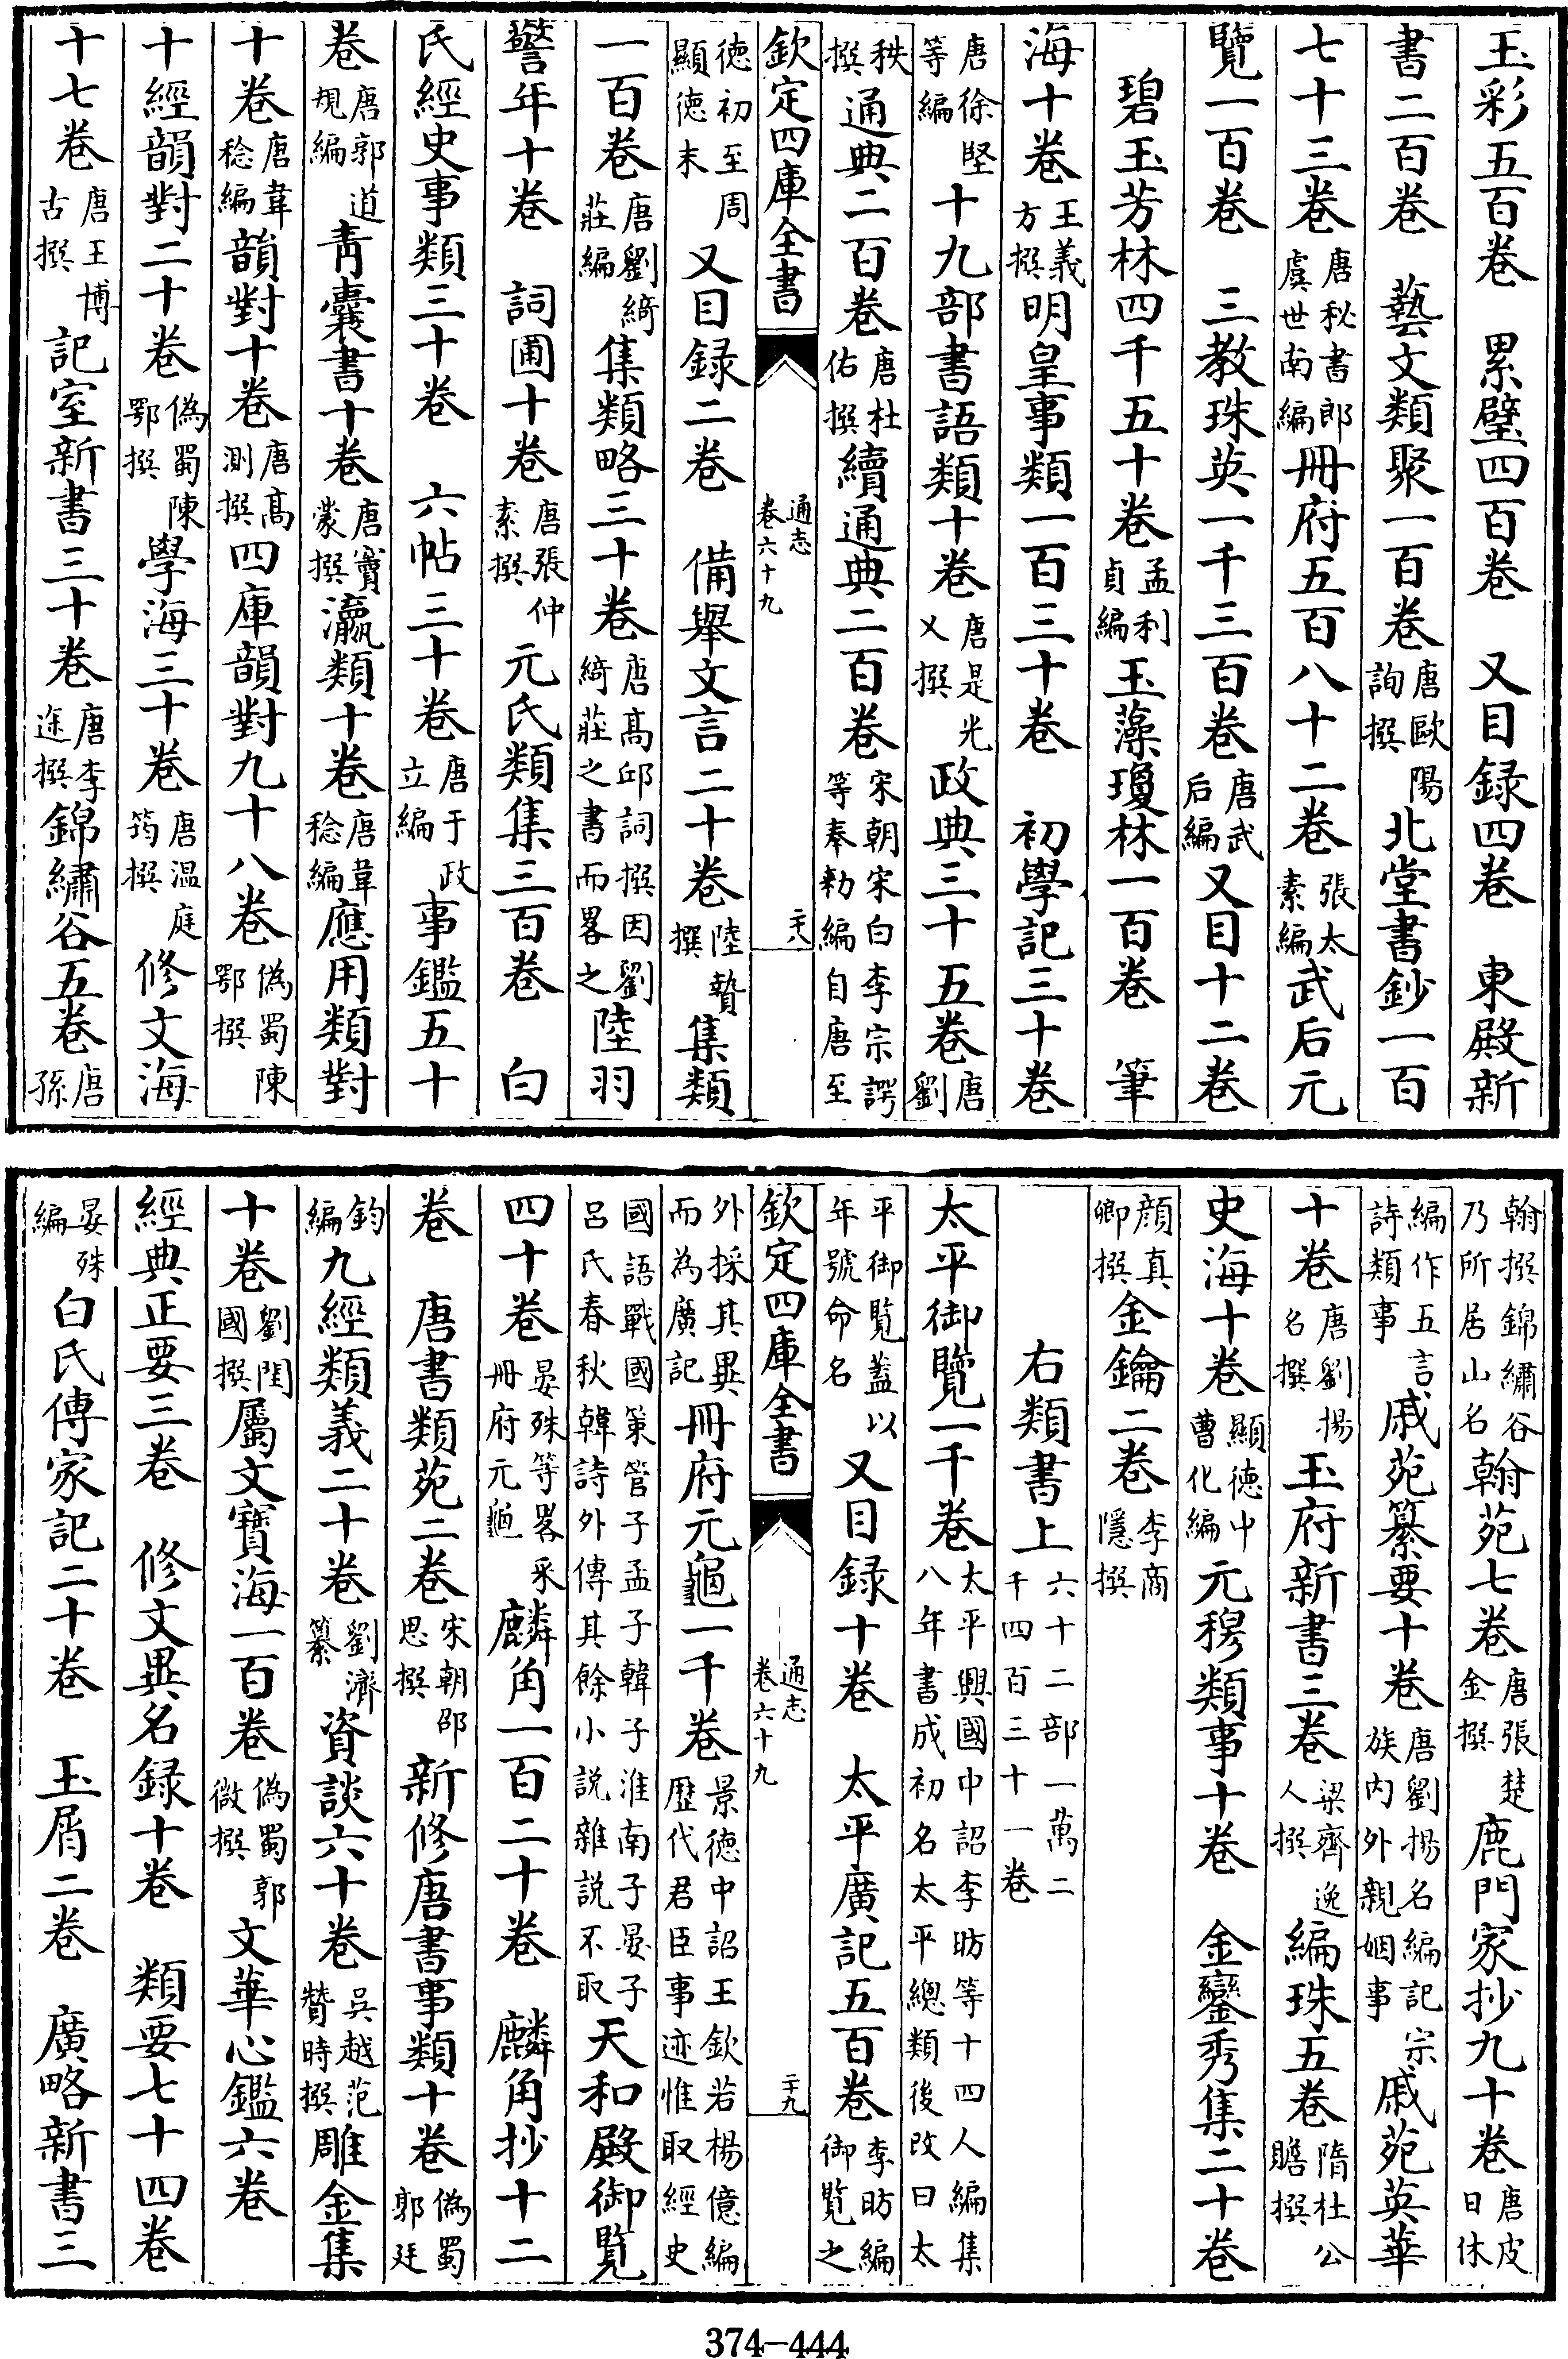 玉彩五百卷　累璧四百卷　又目録四卷　東殿新
書二百卷　藝文類聚一百卷唐歐陽詢撰北堂書鈔一百
七十三卷唐秘書郎虞世南編冊府五百八十二卷張太素編武后元
覽一百卷　三教珠英一千三百卷唐武后編又目十二卷
碧玉芳林四千五十卷孟利貞編玉藻瓊林一百卷　筆
海十卷王義方撰明皇事類一百三十卷　初學記三十卷
唐徐堅等編十九部書語類十卷唐是光乂撰政典三十五卷唐劉
秩撰通典二百卷唐杜佑撰續通典二百卷宋朝宋白李宗諤等奉勅編自唐至
欽定四庫全書　通志卷六十九　二十八
德初至周顯德末又目録二卷　備舉文言二十卷陸贄撰集類
一百卷唐劉綺莊編集類略三十卷唐髙邱詞撰因劉綺莊之書而畧之陸羽
警年十卷　詞圃十卷唐張仲素撰元氏類集三百卷　白
氏經史事類三十卷　六帖三十卷唐于政立編事鑑五十
卷唐郭道規編青囊書十卷唐竇蒙撰瀛類十卷唐韋稔編應用類對
十卷唐韋稔編韻對十卷唐髙測撰四庫韻對九十八卷偽蜀陳鄂撰
十經韻對二十卷偽蜀陳鄂撰學海三十卷唐温庭筠撰修文海
十七卷唐王博古撰記室新書三十卷唐李途撰錦繡谷五卷唐孫
翰撰錦繡谷乃所居山名翰苑七卷唐張楚金撰鹿門家抄九十卷唐皮日休
編作五言詩類事戚苑纂要十卷唐劉揚名編記宗族内外親姻事戚苑英華
十卷唐劉揚名撰玉府新書三卷梁齊逸人撰編珠五卷隋杜公瞻撰
史海十卷顯德中曹化編元穆類事十卷　金鑾秀集二十卷
顔真卿撰金鑰二卷李商隱撰
右類書上六十二部一萬二千四百三十一卷
太平御覽一千卷太平興國中詔李昉等十四人編集八年書成初名太平總類後改曰太
平御覽蓋以年號命名又目録十卷　太平廣記五百卷李昉編御覽之
欽定四庫全書　通志卷六十九　二十九
外採其異而為廣記冊府元龜一千卷景德中詔王欽若楊億編歷代君臣事迹惟取經史
國語戰國策管子孟子韓子淮南子晏子吕氏春秋韓詩外傳其餘小説雜説不取天和殿御覽
四十卷晏殊等畧采冊府元龜麟角一百二十卷　麟角抄十二
卷　唐書類苑二卷宋朝邵思撰新修唐書事類十卷偽蜀郭廷
鈞編九經類義二十卷劉濟纂資談六十卷吳越范贊時撰雕金集
十卷劉閏國撰屬文寶海一百卷偽蜀郭微撰文華心鑑六卷
經典正要三卷　修文異名録十卷　類要七十四卷
晏殊編白氏傳家記二十卷　玉屑二卷　廣略新書三
374-444